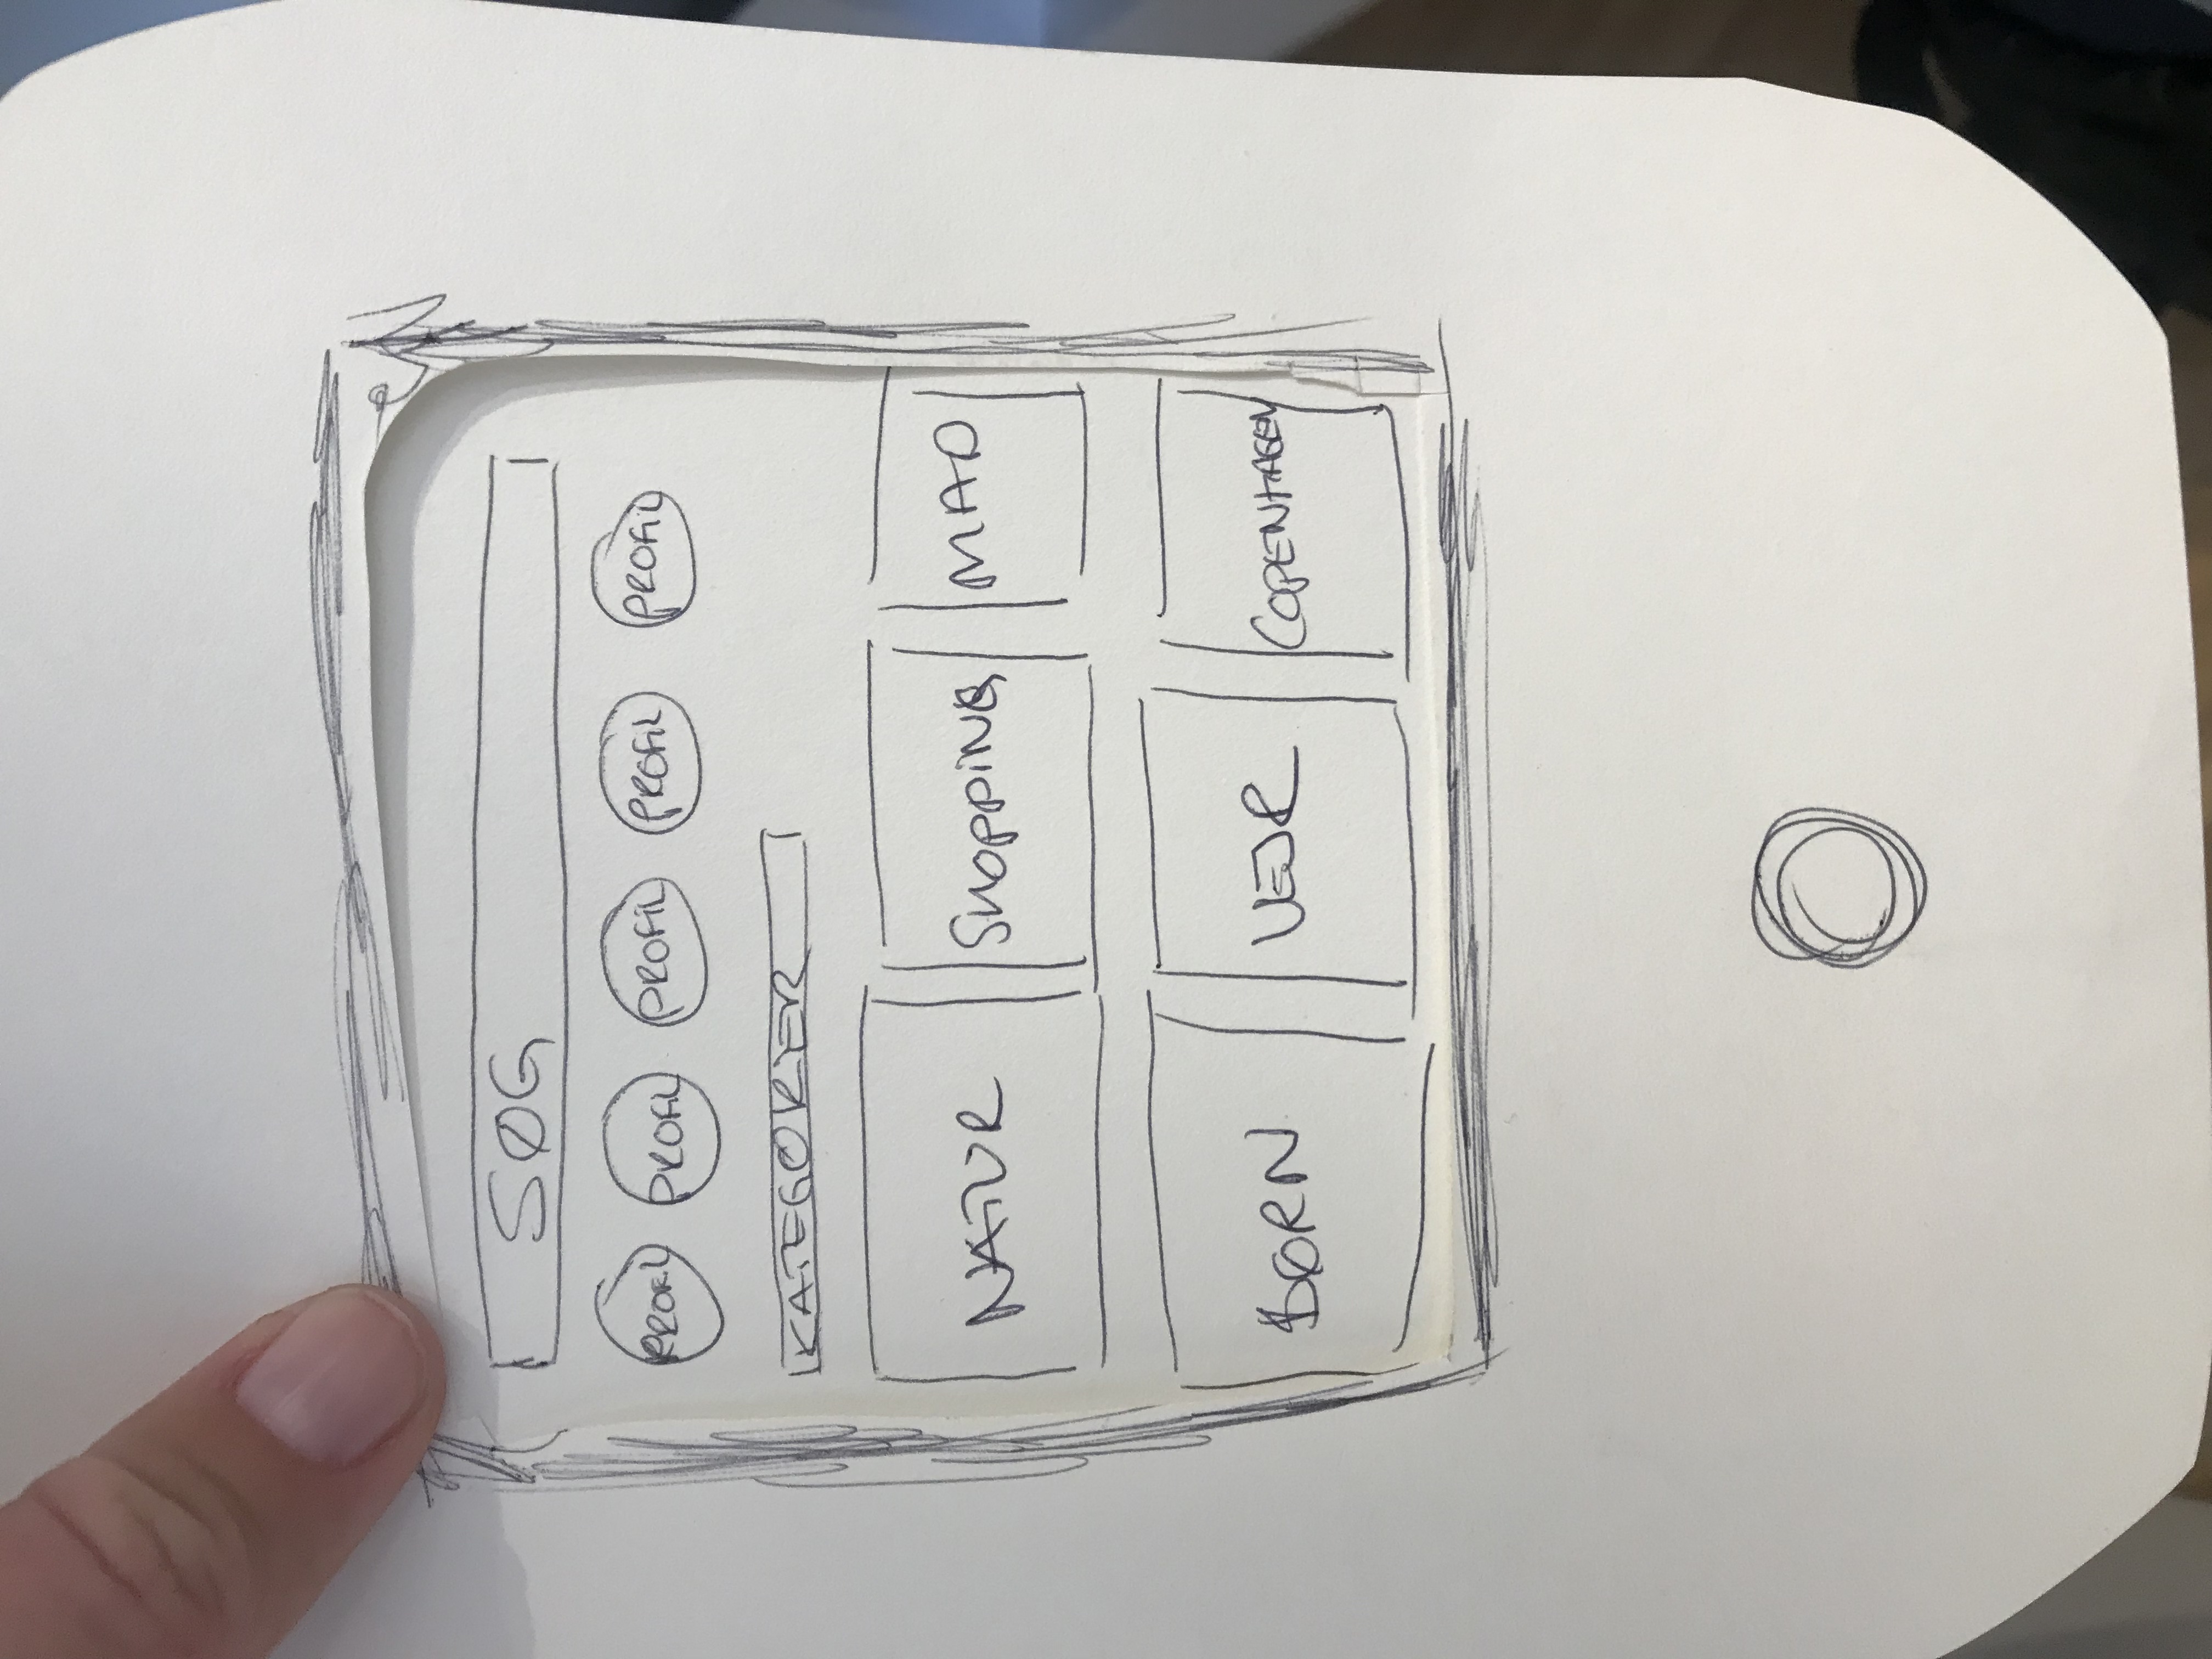 SØG
PROFIL PROFIL PROFIL PROFIL PROFIL
KATEGORIER
NATUR SHOPPING MAD
BØRN VEJR COPENHAGEN